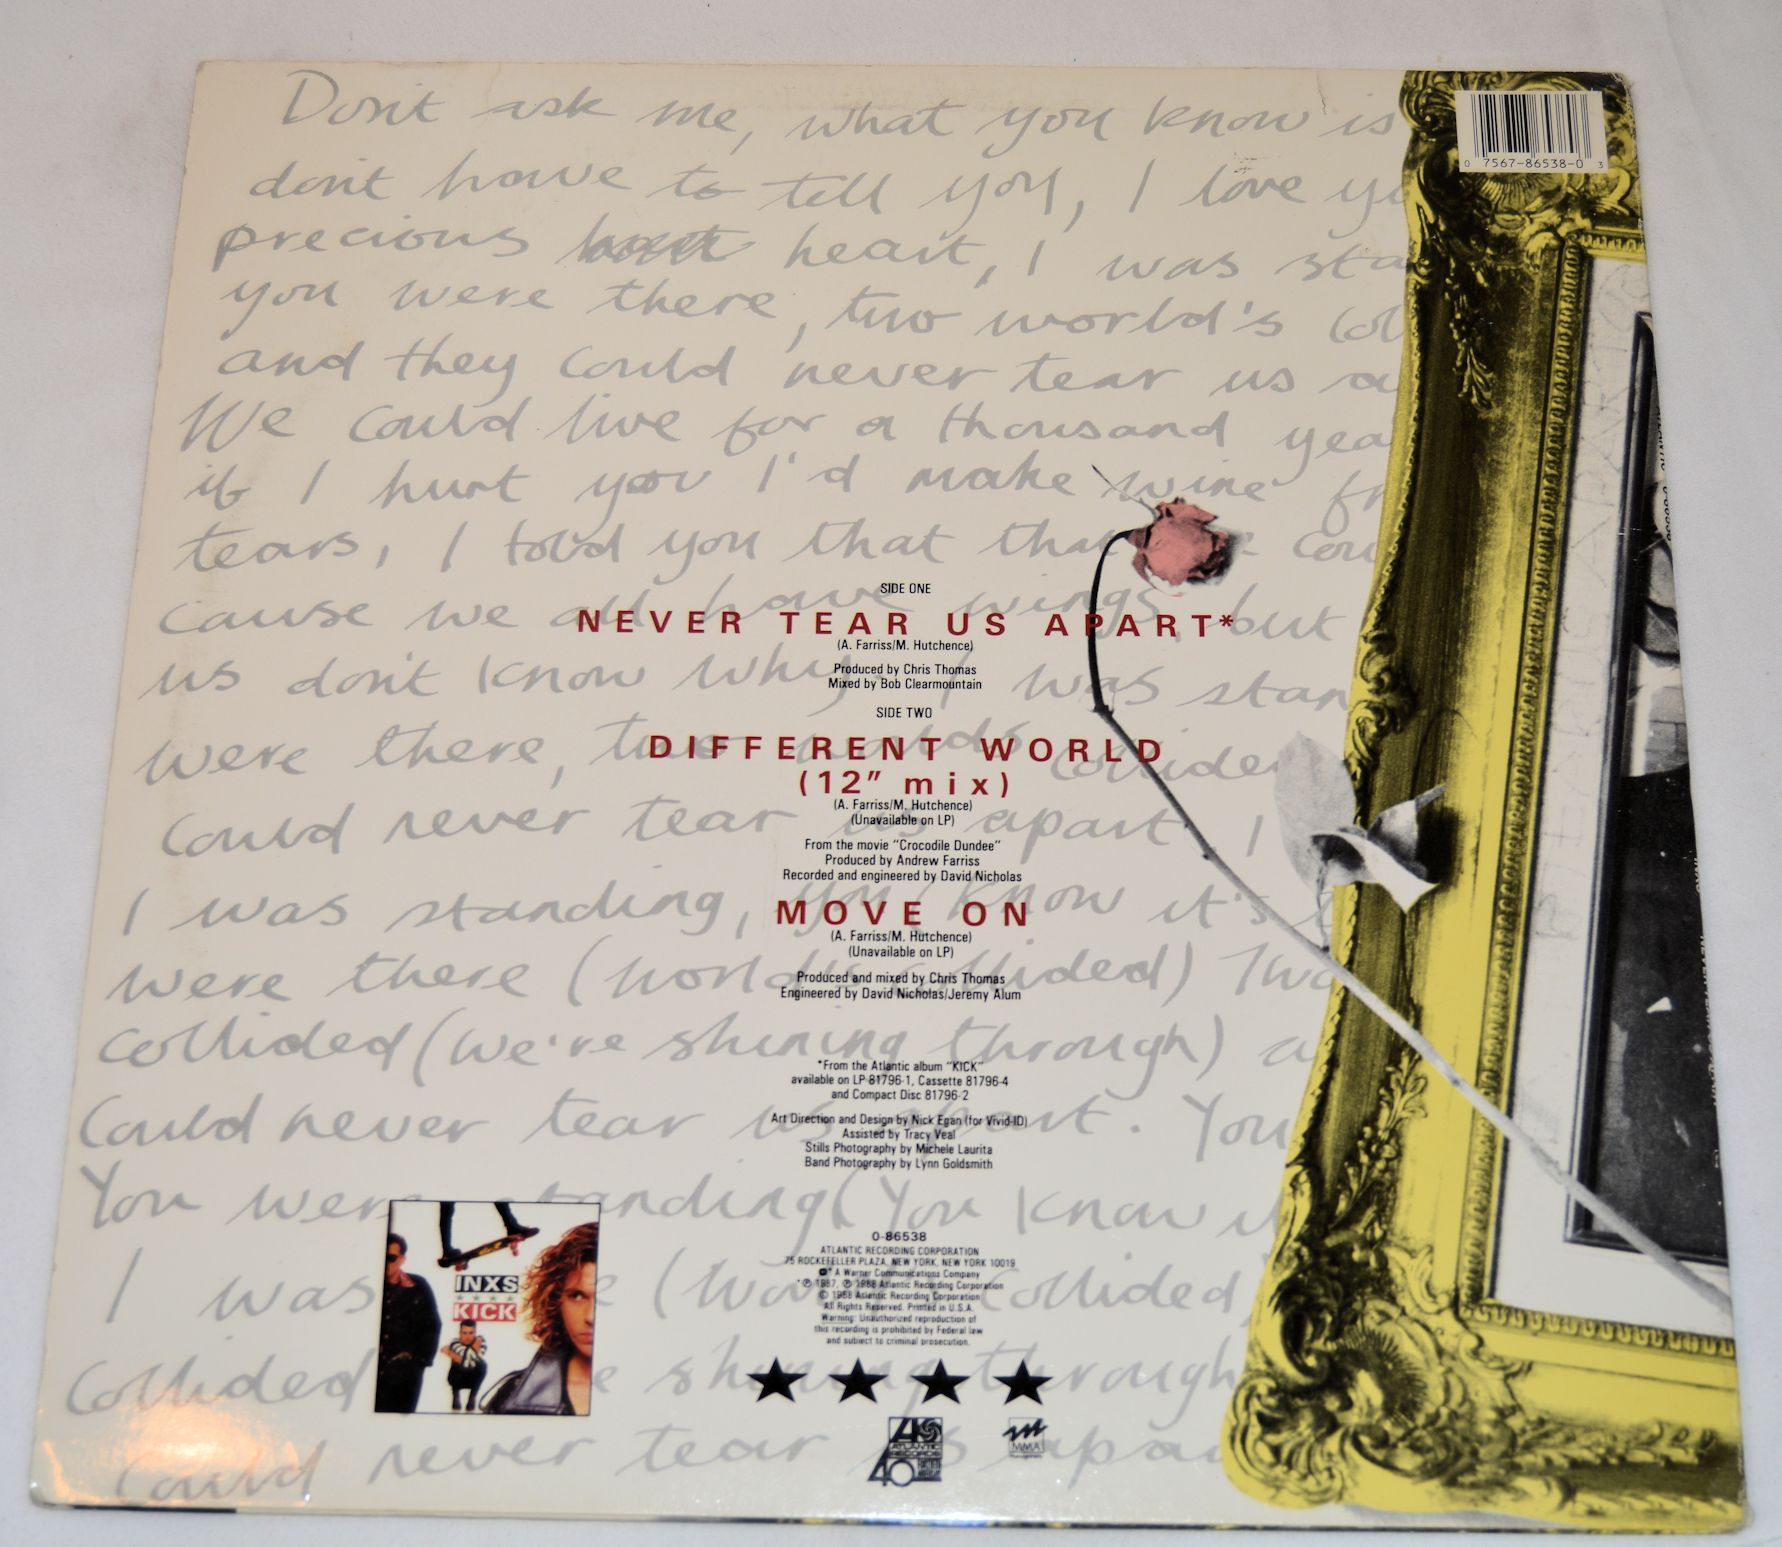 Don't ask me, what you know is
don't have to tell you, I love
precious heart, I was
you were there, two world's
and they could never tear us
We could live for a thousand
if I hurt you I'd make wine
tears, I told you that
cause we all have wings, but
us don't know why I was
were there, two worlds
could never tear us apart I
I was standing, you know it's
were there (worlds collided)
collided (we're shining through)
could never tear us apart. You
You were standing (You know
I was (collided
collided shining through
could never tear us
0 7567-86538-0 3
SIDE ONE
NEVER TEAR US APART*
(A. Farriss/M. Hutchence)
Produced by Chris Thomas
Mixed by Bob Clearmountain
SIDE TWO
DIFFERENT WORLD
(12" mix)
(A. Farriss/M. Hutchence)
(Unavailable on LP)
From the movie "Crocodile Dundee"
Produced by Andrew Farriss
Recorded and engineered by David Nicholas
MOVE ON
(A. Farriss/M. Hutchence)
(Unavailable on LP)
Produced and mixed by Chris Thomas
Engineered by David Nicholas/Jeremy Alum
*From the Atlantic album "KICK"
available on LP 81796-1, Cassette 81796-4
and Compact Disc 81796-2
Art Direction and Design by Nick Egan (for Vivid-ID)
Assisted by Tracy Veal
Stills Photography by Michele Laurita
Band Photography by Lynn Goldsmith
INXS
KICK
0-86538
ATLANTIC RECORDING CORPORATION
75 ROCKEFELLER PLAZA, NEW YORK, NEW YORK 10019
A Warner Communications Company
*℗ 1987, ℗ 1988 Atlantic Recording Corporation
© 1988 Atlantic Recording Corporation
All Rights Reserved. Printed in U.S.A.
Warning: Unauthorized reproduction of
this recording is prohibited by Federal law
and subject to criminal prosecution.
ATLANTIC
RECORDS
40
MMA